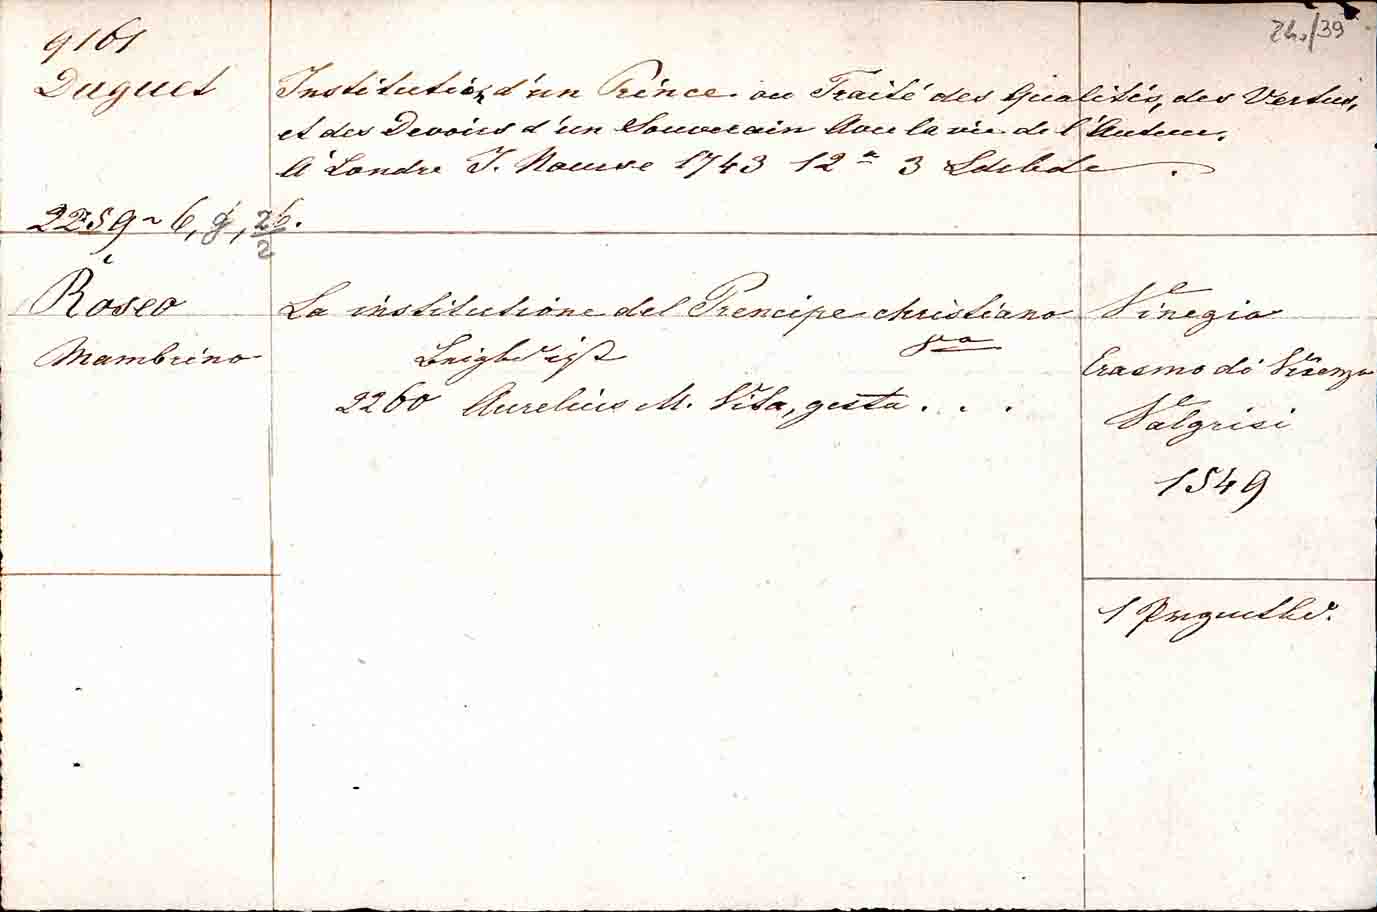 9161
Duguet
Institution d'un Prince ou Traité des Qualités, des Vertus,
et des Devoirs d'un Souverain Avec la vie de l'Auteur.
A Londre J. Nourse 1743 12° 3
2259
Roseo
Mambrino
La institutione del Prencipe christiano
2260 Aurelius M. Vita, gesta . . .
Vinegia
Erasmo di Vicenzo
Valgrisi
1549
1